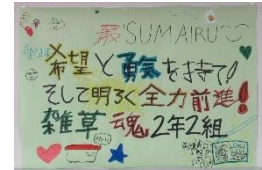 SUMAIRU
希望と勇気を持て!
そして明るく全力前進!
雑草魂 2年2組